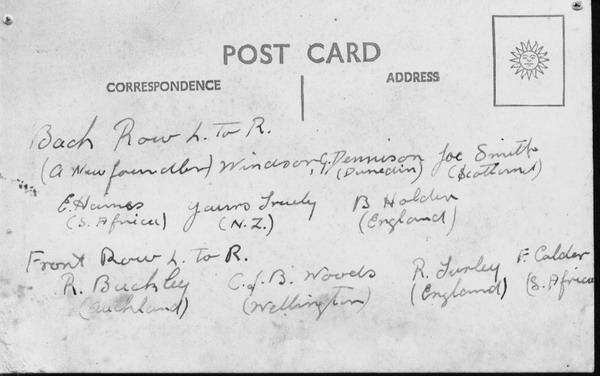 POST CARD
CORRESPONDENCE
ADDRESS
Back Row L. To R.
(A Newfoundler) Windsor, G. Dennison Joe Smith
(Dunedin) (Scotland)
E. Hames yours Truely B Holden
(S. Africa) (N.Z.) (England)
Front Row L. to R.
R. Buckley C.J.B. Woods R. Turley F. Calder
(Auckland) (Wellington) (England) (S. Africa